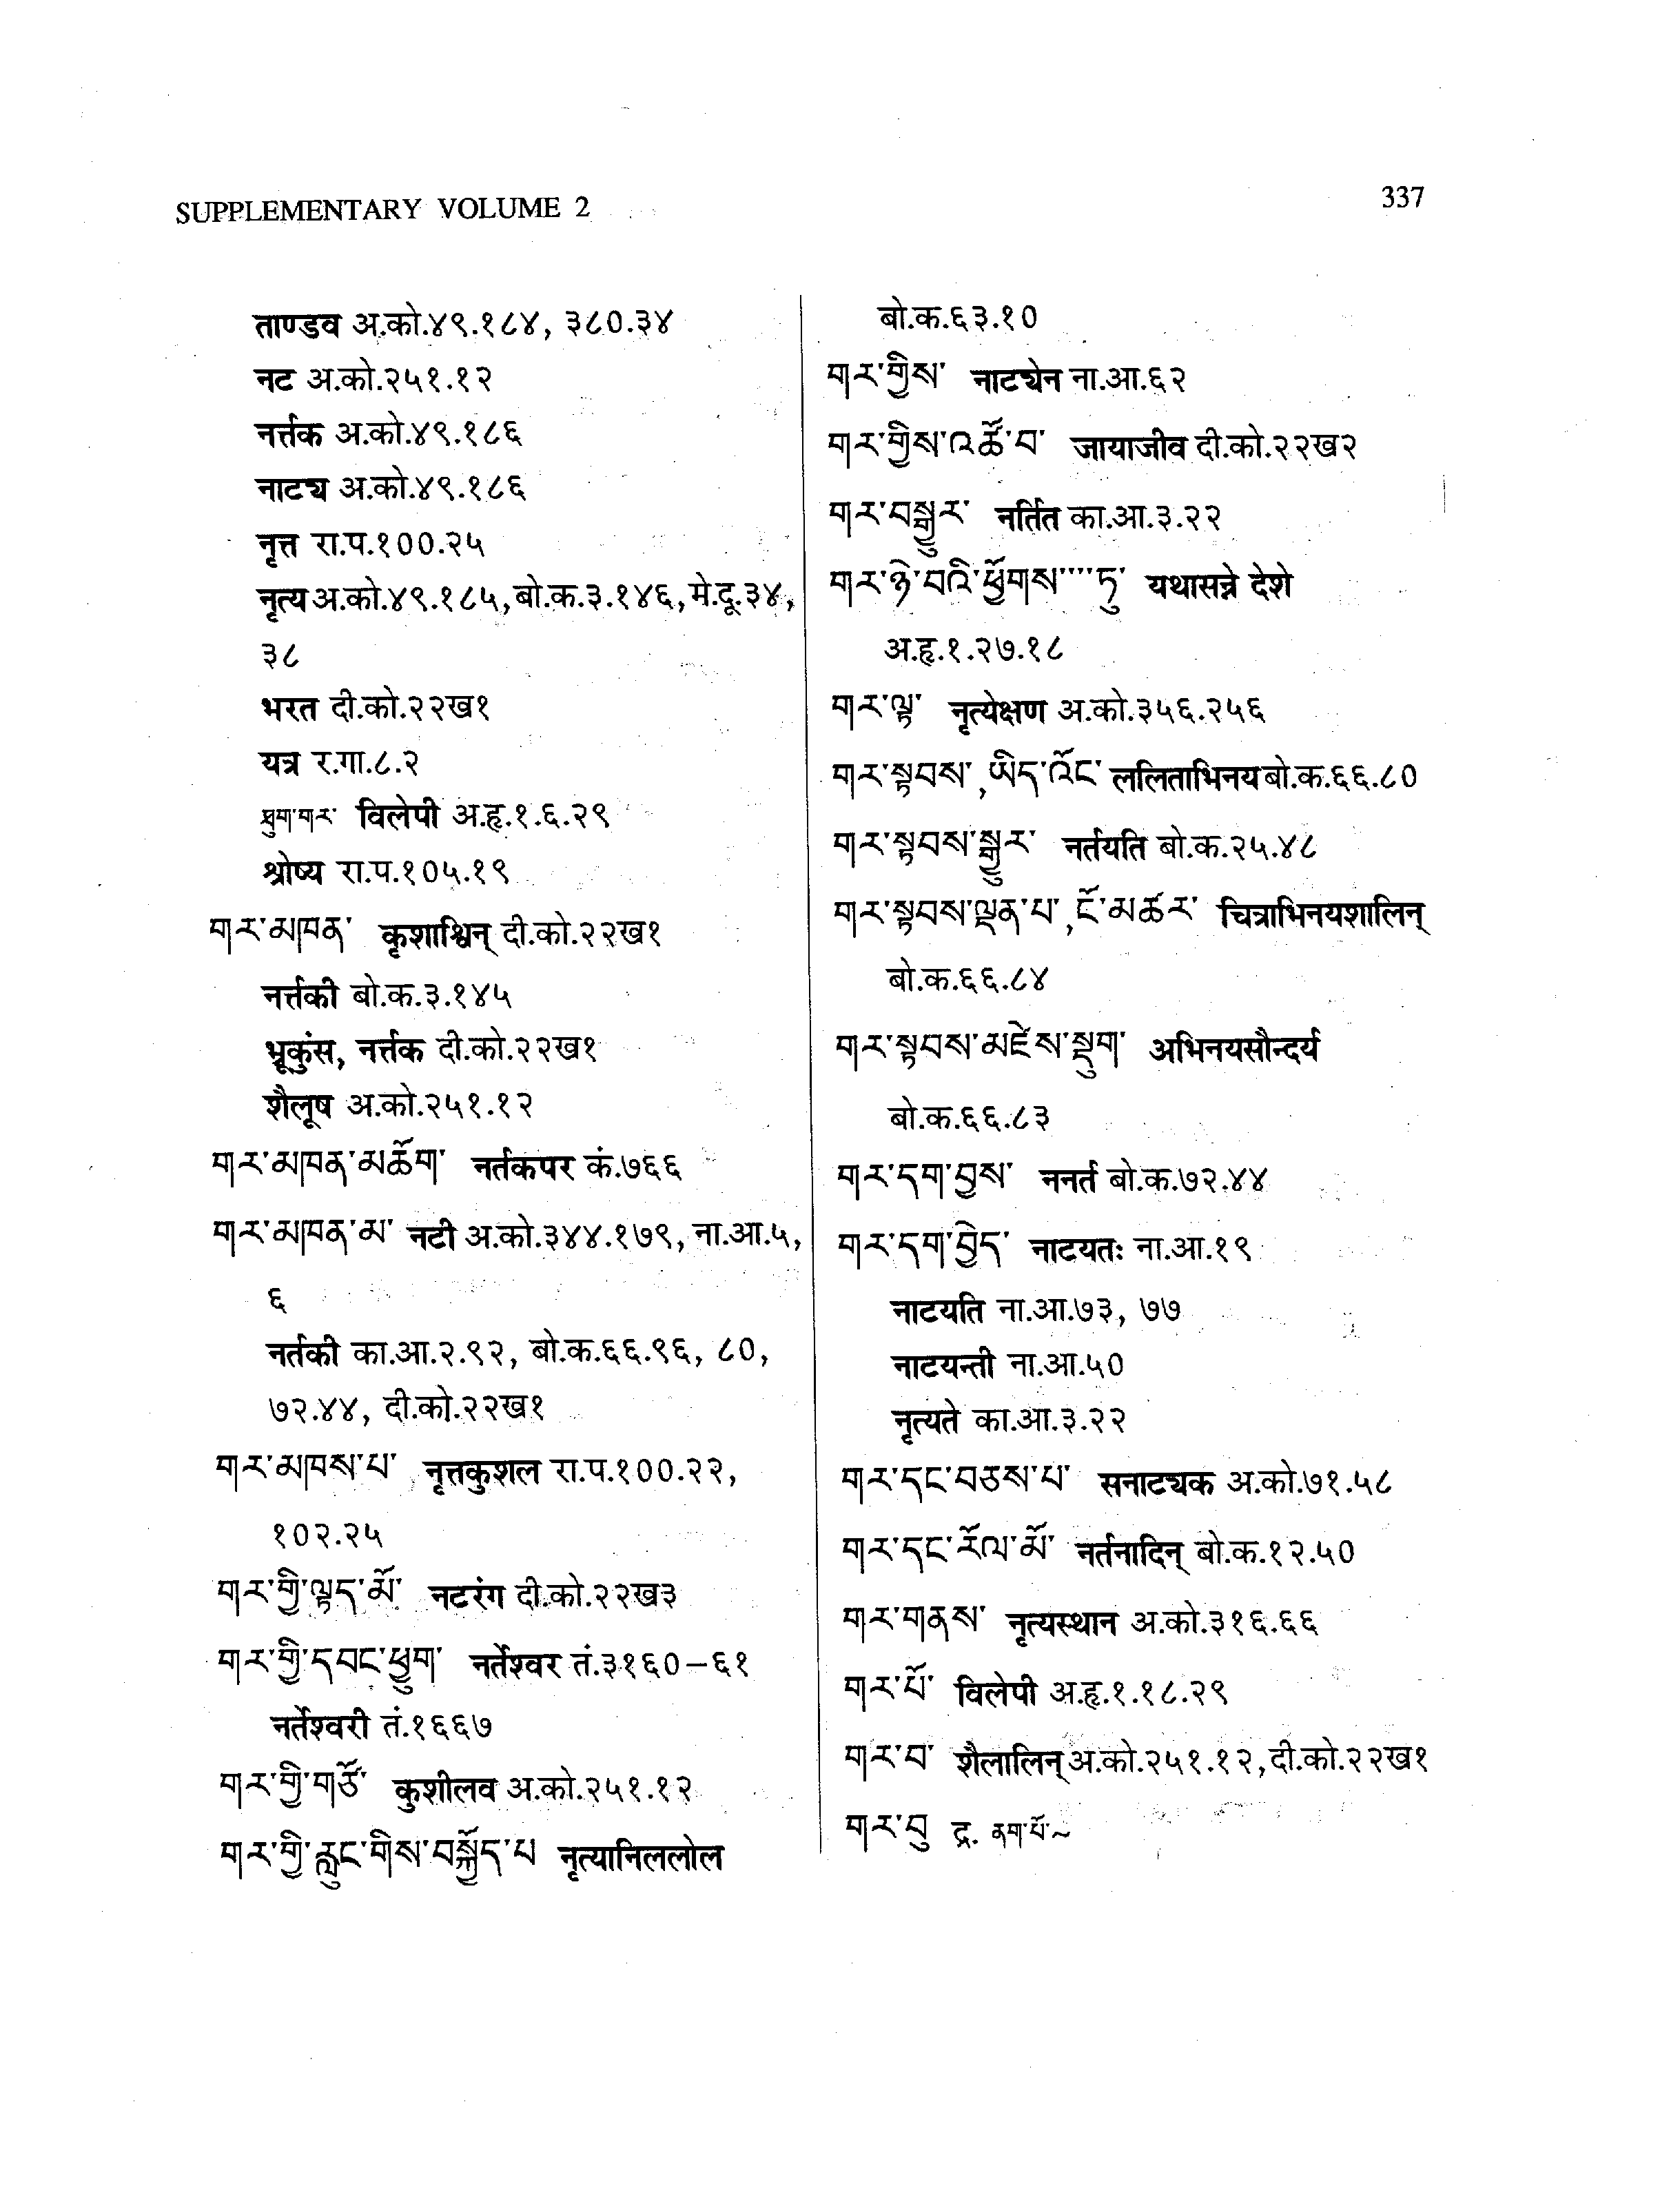 SUPPLEMENTARY VOLUME 2
337
ताण्डव अ.को.४९.१८४, ३८०.३४
नट अ.को.२५१.१२
नर्त्तक अ.को.४९.१८६
नाट्य अ.को.४९.१८६
नृत्त रा.प.१००.२५
नृत्य अ.को.४९.१८५, बो.क.३.१४६, मे.दू.३४,
३८
भरत दी.को.२२ख१
यत्र र.गा.८.२
ཐུག་གར་ विलेपी अ.हृ.१.६.२९
श्रोष्य रा.प.१०५.१९
གར་མཁན་ कृशाश्विन् दी.को.२२ख१
नर्त्तकी बो.क.३.१४५
भ्रूकुंस, नर्त्तक दी.को.२२ख१
शैलूष अ.को.२५१.१२
གར་མཁན་མཆོག་ नर्तकपर कं.७६६
གར་མཁན་མ་ नटी अ.को.३४४.१७९, ना.आ.५,
६
नर्तकी का.आ.२.९२, बो.क.६६.९६, ८०,
७२.४४, दी.को.२२ख१
གར་མཁས་པ་ नृत्तकुशल रा.प.१००.२२,
१०२.२५
གར་གྱི་ལྟད་མོ་ नटरंग दी.को.२२ख३
གར་གྱི་དབང་ཕྱུག་ नर्तेश्वर तं.३१६०–६१
नर्तेश्वरी तं.१६६७
གར་གྱི་གཙོ་ कुशीलव अ.को.२५१.१२
གར་གྱི་རླུང་གིས་བསྐྱོད་པ नृत्यानिललोल
बो.क.६३.१०
གར་གྱིས་ नाट्येन ना.आ.६२
གར་གྱིས་འཚོ་བ་ जायाजीव दी.को.२२ख२
གར་བསྒྱུར་ नर्तित का.आ.३.२२
གར་ཉེ་བའི་ཕྱོགས་་་་ཏུ་ यथासन्ने देशे
अ.हृ.१.२७.१८
གར་ལྟ་ नृत्येक्षण अ.को.३५६.२५६
གར་སྟབས་,ཡིད་འོང་ ललिताभिनय बो.क.६६.८०
གར་སྟབས་སྒྱུར་ नर्तयति बो.क.२५.४८
གར་སྟབས་ལྡན་པ་,ངོ་མཚར་ चित्राभिनयशालिन्
बो.क.६६.८४
གར་སྟབས་མཛེས་སྡུག་ अभिनयसौन्दर्य
बो.क.६६.८३
གར་དག་བྱས་ ननर्त बो.क.७२.४४
གར་དག་བྱེད་ नाटयतः ना.आ.१९
नाटयति ना.आ.७३, ७७
नाटयन्ती ना.आ.५०
नृत्यते का.आ.३.२२
གར་དང་བཅས་པ་ सनाट्यक अ.को.७१.५८
གར་དང་རོལ་མོ་ नर्तनादिन् बो.क.१२.५०
གར་གནས་ नृत्यस्थान अ.को.३१६.६६
གར་པོ་ विलेपी अ.हृ.१.१८.२९
གར་བ་ शैलालिन् अ.को.२५१.१२, दी.को.२२ख१
གར་བུ द्र. ནག་པོ་~